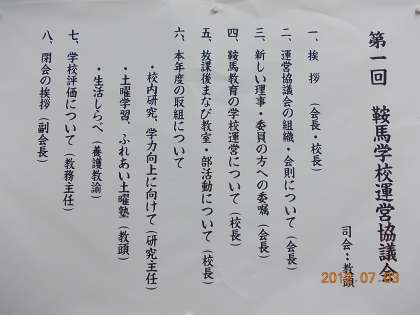 第一回　鞍馬学校運営協議会
司会：教頭
一、挨　拶　（会長・校長）
二、運営協議会の組織・会則について（会長）
三、新しい理事・委員の方への委嘱（会長）
四、鞍馬教育の学校運営について（校長）
五、放課後まなび教室・部活動について（校長）
六、本年度の取組について
・校内研究、学力向上に向けて（研究主任）
・土曜学習、ふれあい土曜塾（教頭）
・生活しらべ（養護教諭）
七、学校評価について（教務主任）
八、閉会の挨拶（副会長）